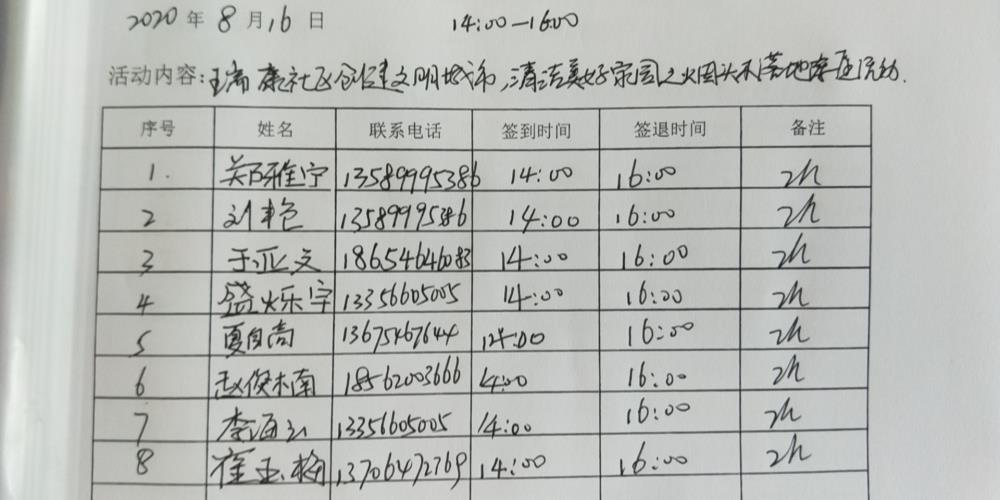 2020年8月16日 14:00—16:00
活动内容:瑞康社区创建文明城市,清洁美好家园之火因头不落地志愿活动.
序号 姓名 联系电话 签到时间 签退时间 备注
1. 郑雅宁 13589995386 14:00 16:00 2h
2 刘艳 13589995386 14:00 16:00 2h
3 于亚文 18654646083 14:00 16:00 2h
4 盛烁宇 13356605005 14:00 16:00 2h
5 夏自尚 13675467644 14:00 16:00 2h
6 赵俊楠 18562003666 14:00 16:00 2h
7 李海 13356605005 14:00 16:00 2h
8 崔玉梅 13706472769 14:00 16:00 2h